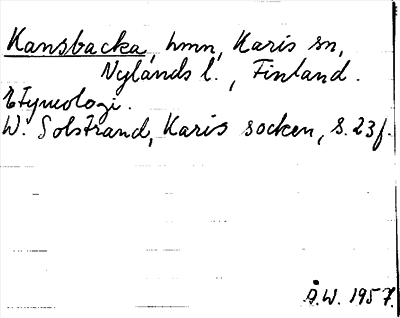 Kansbacka, hmn, Karis sn,
Nylands l., Finland.
Etymologi.
W. Solstrand, Karis socken, s. 23f.
Å.W. 1957.